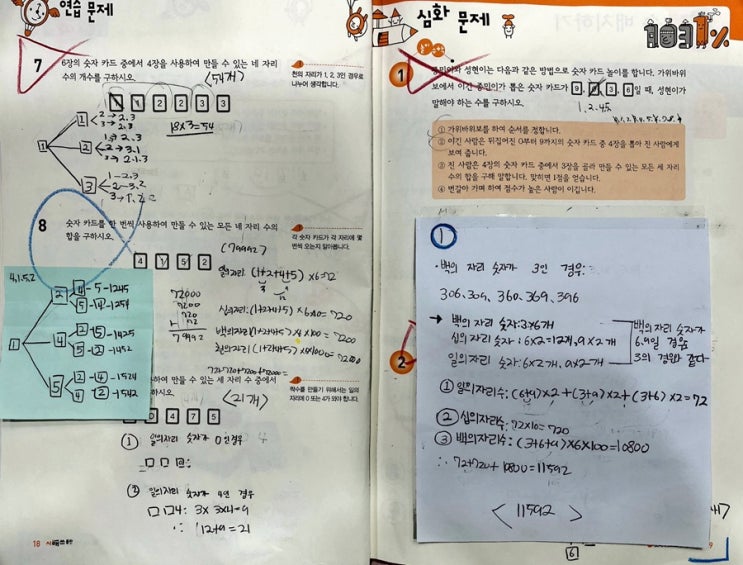 연습 문제
7 6장의 숫자 카드 중에서 4장을 사용하여 만들 수 있는 네 자리
수의 개수를 구하시오.
(54개)
천의 자리가 1, 2, 3인 경우로
나누어 생각합니다.
1 1 2 2 3 3
18×3=54
8 숫자 카드를 한 번씩 사용하여 만들 수 있는 모든 네 자리 수의
합을 구하시오.
각 숫자 카드가 각 자리에 몇
번씩 오는지 알아봅니다.
(79992)
4 1 5 2
일의자리: (1+2+4+5)×6=72
12
십의자리: (1+2+4+5)×6×10=720
백의자리(1+2+4+5)×6×100=7200
72000
7200
720
72
79992
72+720+7200+72000=
4,1,5,2
1
2 4-5-1245
5-4-1254
4 2-5-1425
5-2-1452
5 2-4-1524
4-2-1542
만들 수 있는 세 자리 수 중에서
하시오.
(21개)
짝수를 만들기 위해서는 일의
자리에 0 또는 4가 와야 합니다.
0 4 7 5
① 일의자리 숫자가 0인 경우
② 일의자리 숫자가 4인 경우
□□4: 3×3×1=9
∴ 12+9=21
18
심화 문제
1031%
1 종민이와 성현이는 다음과 같은 방법으로 숫자 카드 놀이를 합니다. 가위바위
보에서 이긴 종민이가 뽑은 숫자 카드가 9, 0, 3, 6일 때, 성현이가
말해야 하는 수를 구하시오.
① 가위바위보를 하여 순서를 정합니다.
② 이긴 사람은 뒤집어진 0부터 9까지의 숫자 카드 중 4장을 뽑아 진 사람에게
보여 줍니다.
③ 진 사람은 4장의 숫자 카드 중에서 3장을 골라 만들 수 있는 모든 세 자리
수의 합을 구해 말합니다. 맞히면 1점을 얻습니다.
④ 번갈아 가며 하여 점수가 높은 사람이 이깁니다.
①
·백의 자리 숫자가 3인 경우:
306, 309, 360, 369, 390, 396
→ 백의 자리 숫자: 3×6개
십의 자리 숫자: 6×2개, 9×2개
일의자리 숫자: 6×2개, 9×2개
백의자리 숫자가
6, 9일 경우
3의 경우와 같다
① 일의자리수: (6+9)×2+(3+9)×2+(3+6)×2=72
② 십의자리수: 72×10=720
③ 백의자리수: (3+6+9)×6×100=10800
∴ 72+720+10800=11592
<11592>
2
6